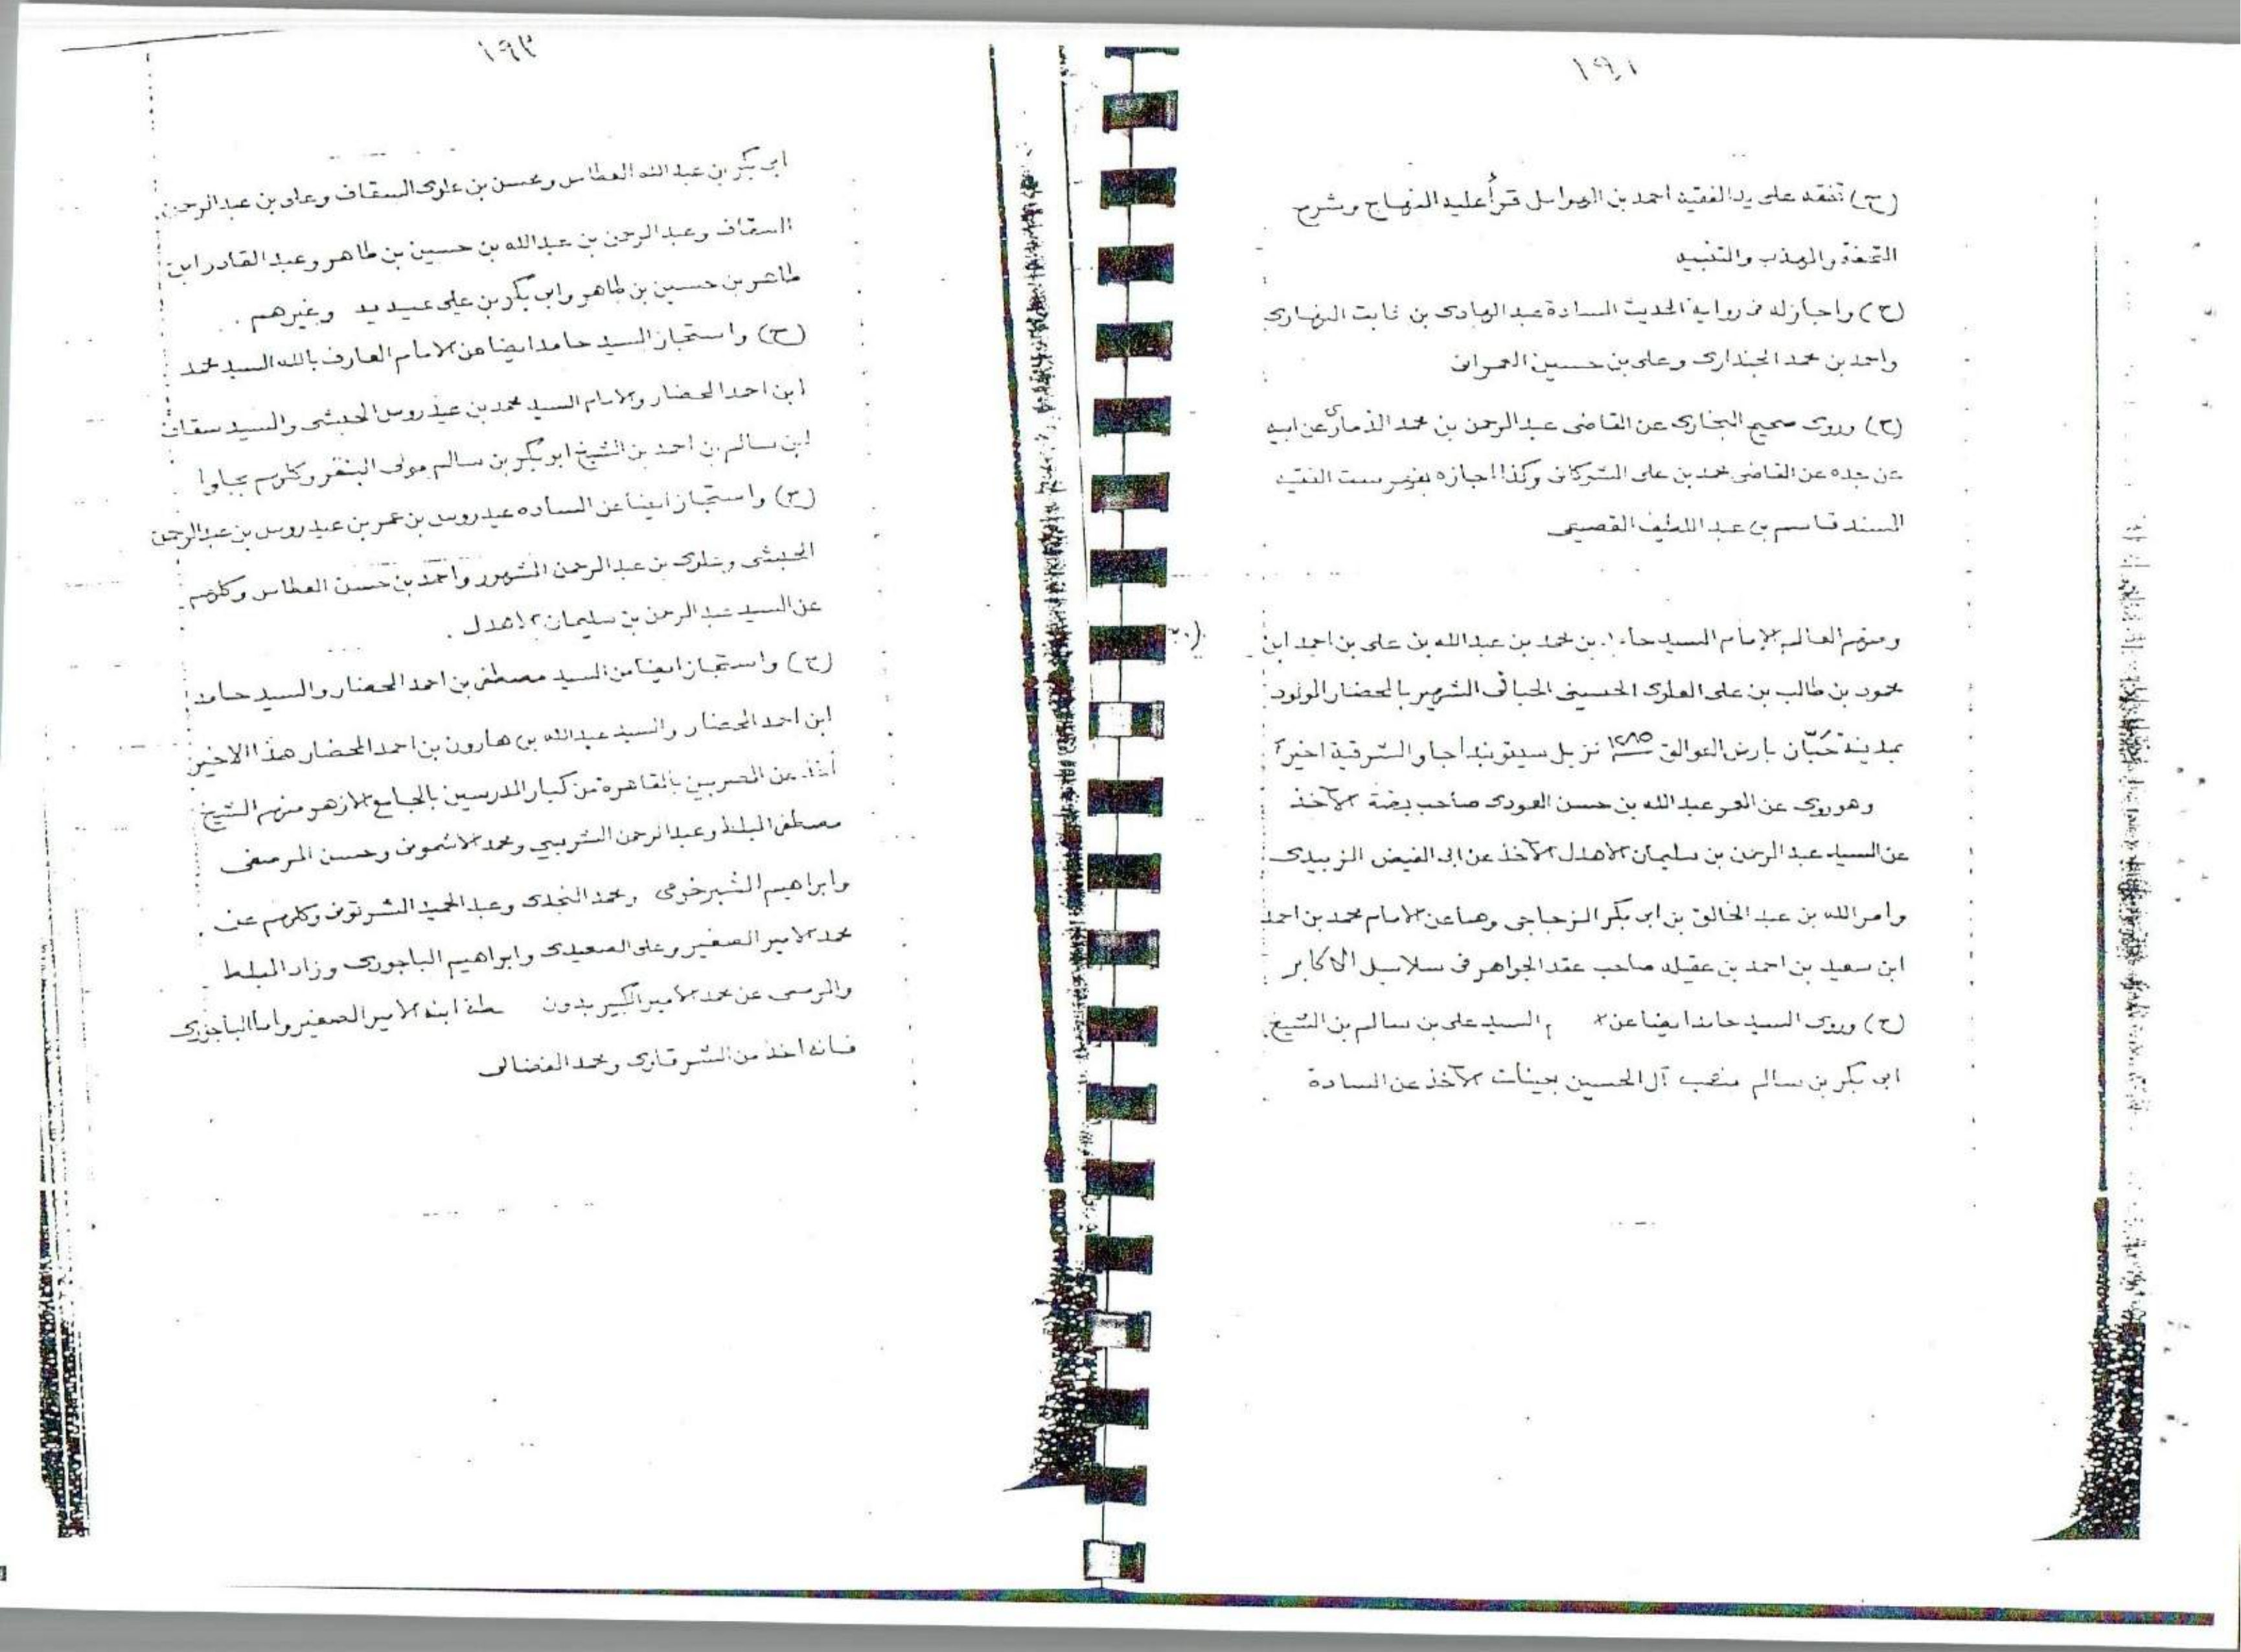 ١٩١
(ح) تفقه على يد الفقيه احمد بن الهوامل قرأ عليه المنهاج وشرح
التحفة والمهذب والتنبيه
(ح) واجاز له فى رواية الحديث السادة عبد الهادى بن ثابت النهارى
واحمد بن محمد الجندارى وعلى بن حسين العمرانى
(ح) وروى صحيح البخارى عن القاضى عبد الرحمن بن محمد الذمارى عن ابيه
عن جده عن القاضى محمد بن على الشوكانى وكذا اجازه الفقيه
السند قاسم بن عبد اللطيف القصيعى
ومنهم العالم الامام السيد حامد بن محمد بن عبد الله بن على بن احمد ابن
محمود بن طالب بن على العلوى الحسينى الحبانى الشهير بالمحضار المولود
بمدينة حَبّان بارض العوالق سنة ١٢٨٥ نزيل سيتوبندا جاوا الشرقية اخيرا
وهو روى عن المعمر عبد الله بن حسن العودى صاحب بضة الآخذ
عن السيد عبد الرحمن بن سليمان الاهدل الآخذ عن ابى الفيض الزبيدى
وامر الله بن عبد الخالق بن ابى بكر الزجاجى وهما عن الامام محمد بن احمد
ابن سعيد بن احمد بن عقيله صاحب عقد الجواهر فى سلاسل الاكابر
(ح) وروى السيد حامد ايضا عن السيد على بن سالم بن الشيخ
ابى بكر بن سالم منصب آل الحسين بعينات الآخذ عن السادة
١٩٢
ابى بكر بن عبد الله العطاس ومحسن بن علوى السقاف وعلى بن عبد الرحمن
السقاف وعبد الرحمن بن عبد الله بن حسين بن طاهر وعبد القادر ابن
طاهر بن حسين بن طاهر وابى بكر بن على عيديد وغيرهم .
(ح) واستجاز السيد حامد ايضا من الامام العارف بالله السيد محمد
ابن احمد المحضار والامام السيد محمد بن عيدروس الحبشى والسيد سقاف
ابن سالم بن احمد بن الشيخ ابو بكر بن سالم مولى وكلهم بجاوا
(ح) واستجاز ايضا عن الساده عيدروس بن عمر بن عيدروس بن عبد الرحمن
الحبشى وعلوى بن عبد الرحمن المشهور واحمد بن حسن العطاس وكلهم
عن السيد عبد الرحمن بن سليمان الاهدل .
(ح) واستجاز ايضا من السيد مصطفى بن احمد المحضار والسيد حامد
ابن احمد المحضار والسيد عبد الله بن هارون بن احمد المحضار هذا الاخير
أخذ عن المصريين بالقاهرة من كبار المدرسين بالجامع الازهر منهم الشيخ
مصطفى المبلط وعبد الرحمن الشربيني ومحمد الاشمونى وحسن المرصفى
وابراهيم الشبرخومى ومحمد النجدى وعبد الحميد الشرتونى وكلهم عن
محمد الامير الصغير وعلى الصعيدى وابراهيم الباجورى وزاد المبلط
عن محمد الامير الكبير بدون ابنه الامير الصغير واما الباجورى
فانه اخذ من الشرقاوى ومحمد الفضالى